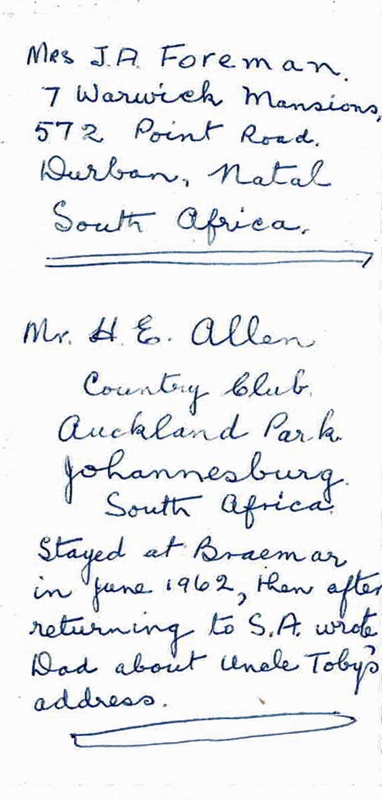 Mrs J.A. Foreman.
7 Warwick Mansions,
572 Point Road.
Durban, Natal
South Africa.
Mr. H. E. Allen
Country Club.
Auckland Park.
Johannesburg.
South Africa.
Stayed at Braemar
in June 1962, then after
returning to S.A. wrote
Dad about Uncle Toby's
address.